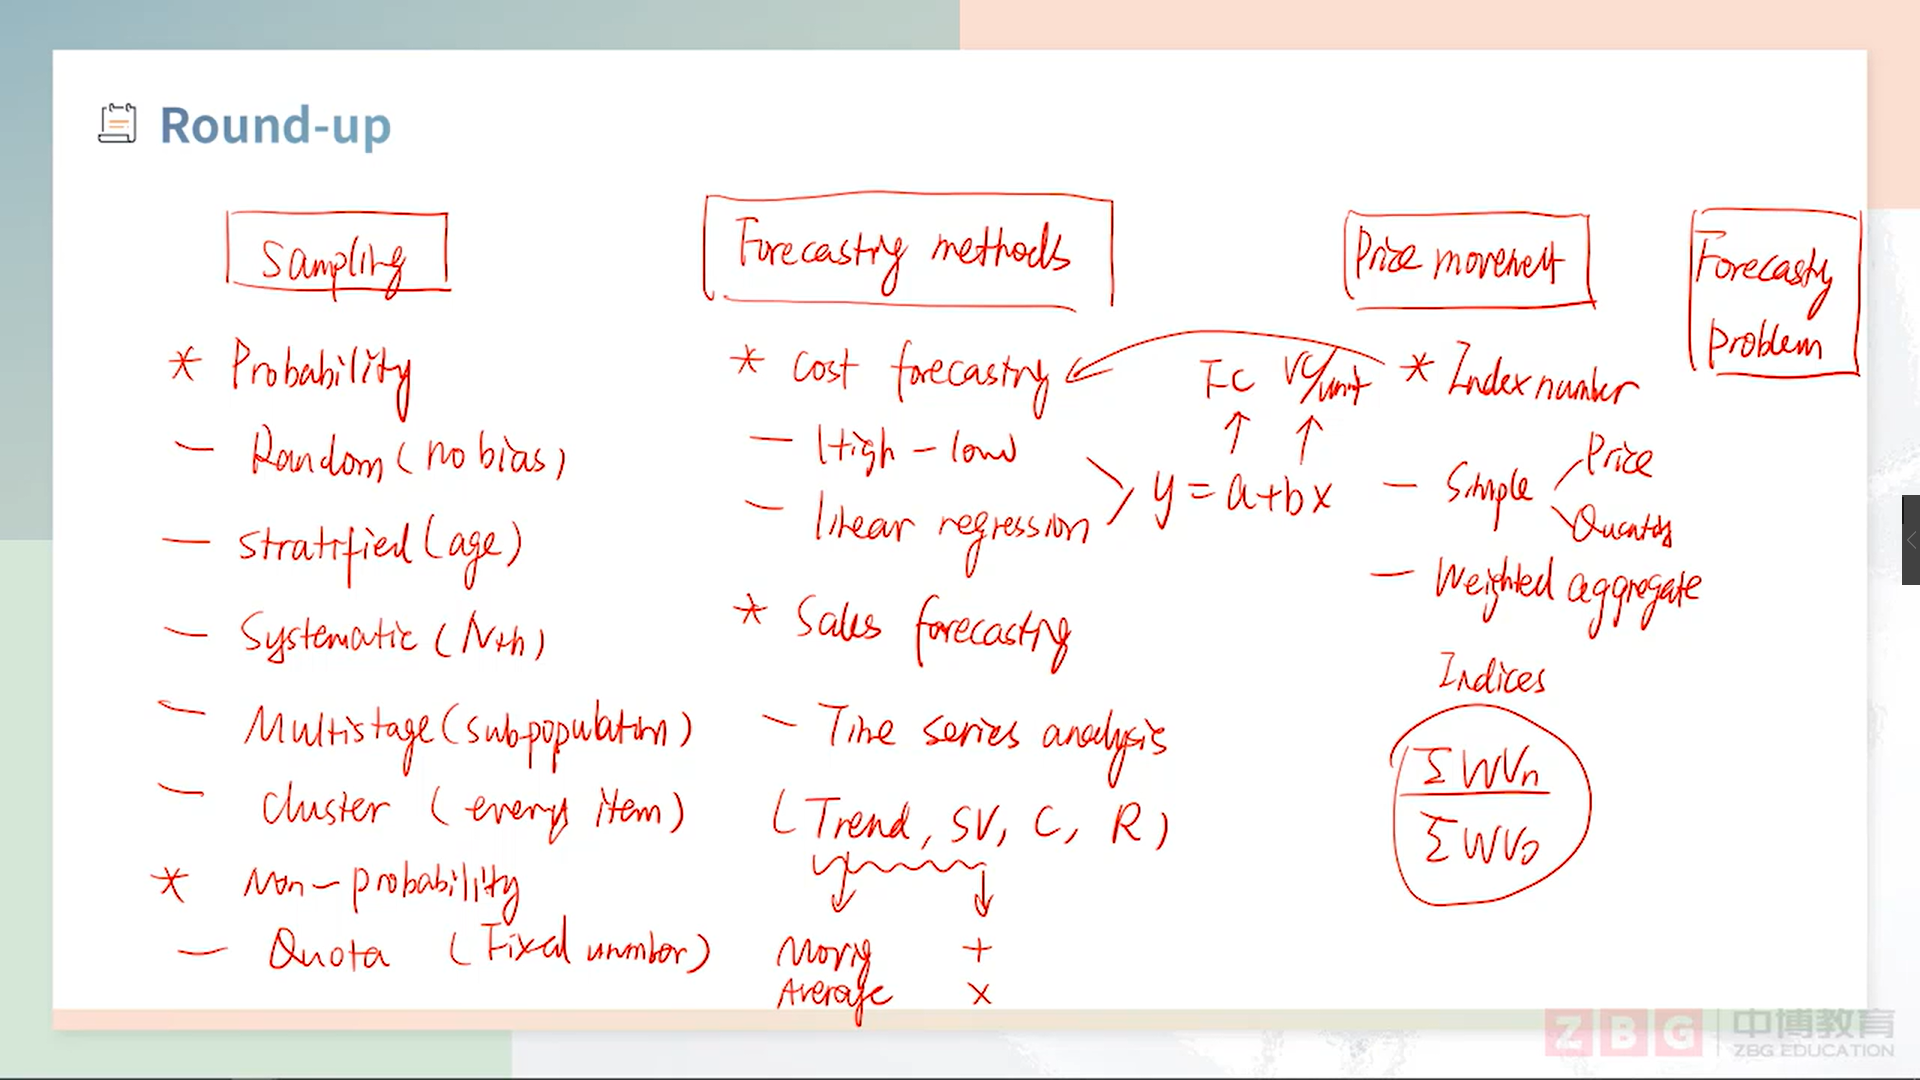 Round-up
Sampling
* Probability
— Random (no bias)
— Stratified (age)
— Systematic (Nth)
— Multistage (subpopulation)
— Cluster (every item)
* Non-probability
— Quota (Fixed number)
Forecasting methods
* Cost forecasting
— High-low
— linear regression
FC VC/unit
y = a+bx
* Sales forecasting
— Time series analysis
(Trend, SV, C, R)
Moving Average
+
×
Price movement
* Index number
— Simple
Price
Quantity
— Weighted aggregate
Indices
ΣWVn
ΣWVo
Forecasting
problem
ZBG 中博教育
ZBG EDUCATION